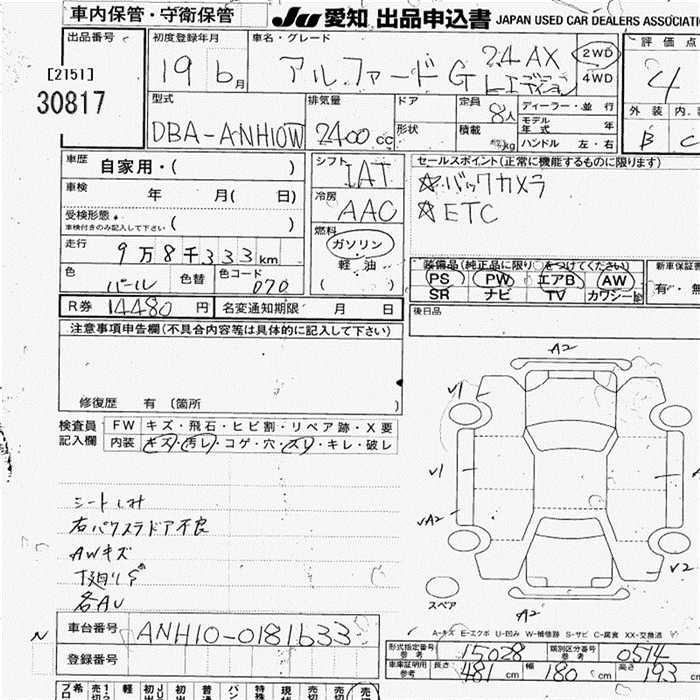 車内保管・守衛保管
JU 愛知 出品申込書 JAPAN USED CAR DEALERS ASSOCIATIO
出品番号
[2151]
30817
初度登録年月
19 6月
車名・グレード
アルファードG 2.4 AX
Lエディション
2WD
4WD
評価点
4
型式
DBA-ANH10W
排気量
2400 cc
ドア
形状
定員 8人
積載 kg
ディーラー・並行
モデル年式 年
ハンドル 左・右
外装 内
B C
車歴 自家用・( )
車検 年 月( 日)
受検形態
車検付きのみ記入して下さい ( )
走行 9万8千333km
色 パール 色替 色コード 070
シフト IAT
冷房 AAC
燃料
ガソリン
軽油
( )
セールスポイント(正常に機能するものに限ります)
☆バックカメラ
☆ETC
装備品(純正品に限り○をつけてください)
PS PW エアB AW
SR ナビ TV カワシート
新車保証書
有・無
R券 14480円 名変通知期限 月 日
後日品
注意事項申告欄(不具合内容等は具体的に記入して下さい)
修復歴 有 〔箇所 〕
検査員記入欄
FW キズ・飛石・ヒビ割・リペア跡・X要
内装 キズ・汚レ・コゲ・穴・スレ・キレ・破レ
シートしみ
右パワスラドア不良
AWキズ
下廻りS
各AU
A2
√1
√1
√A2
√2
A2
スペア
A-キズ E-エクボ U-凹み W-補修跡 S-サビ C-腐食 XX-交換済
N
車台番号 ANH10-0181633
登録番号
形式指定番号参考 15028 類別区分番号参考 0514
車庫証明用参考 長さ 481cm 幅 180cm 高さ 193cm